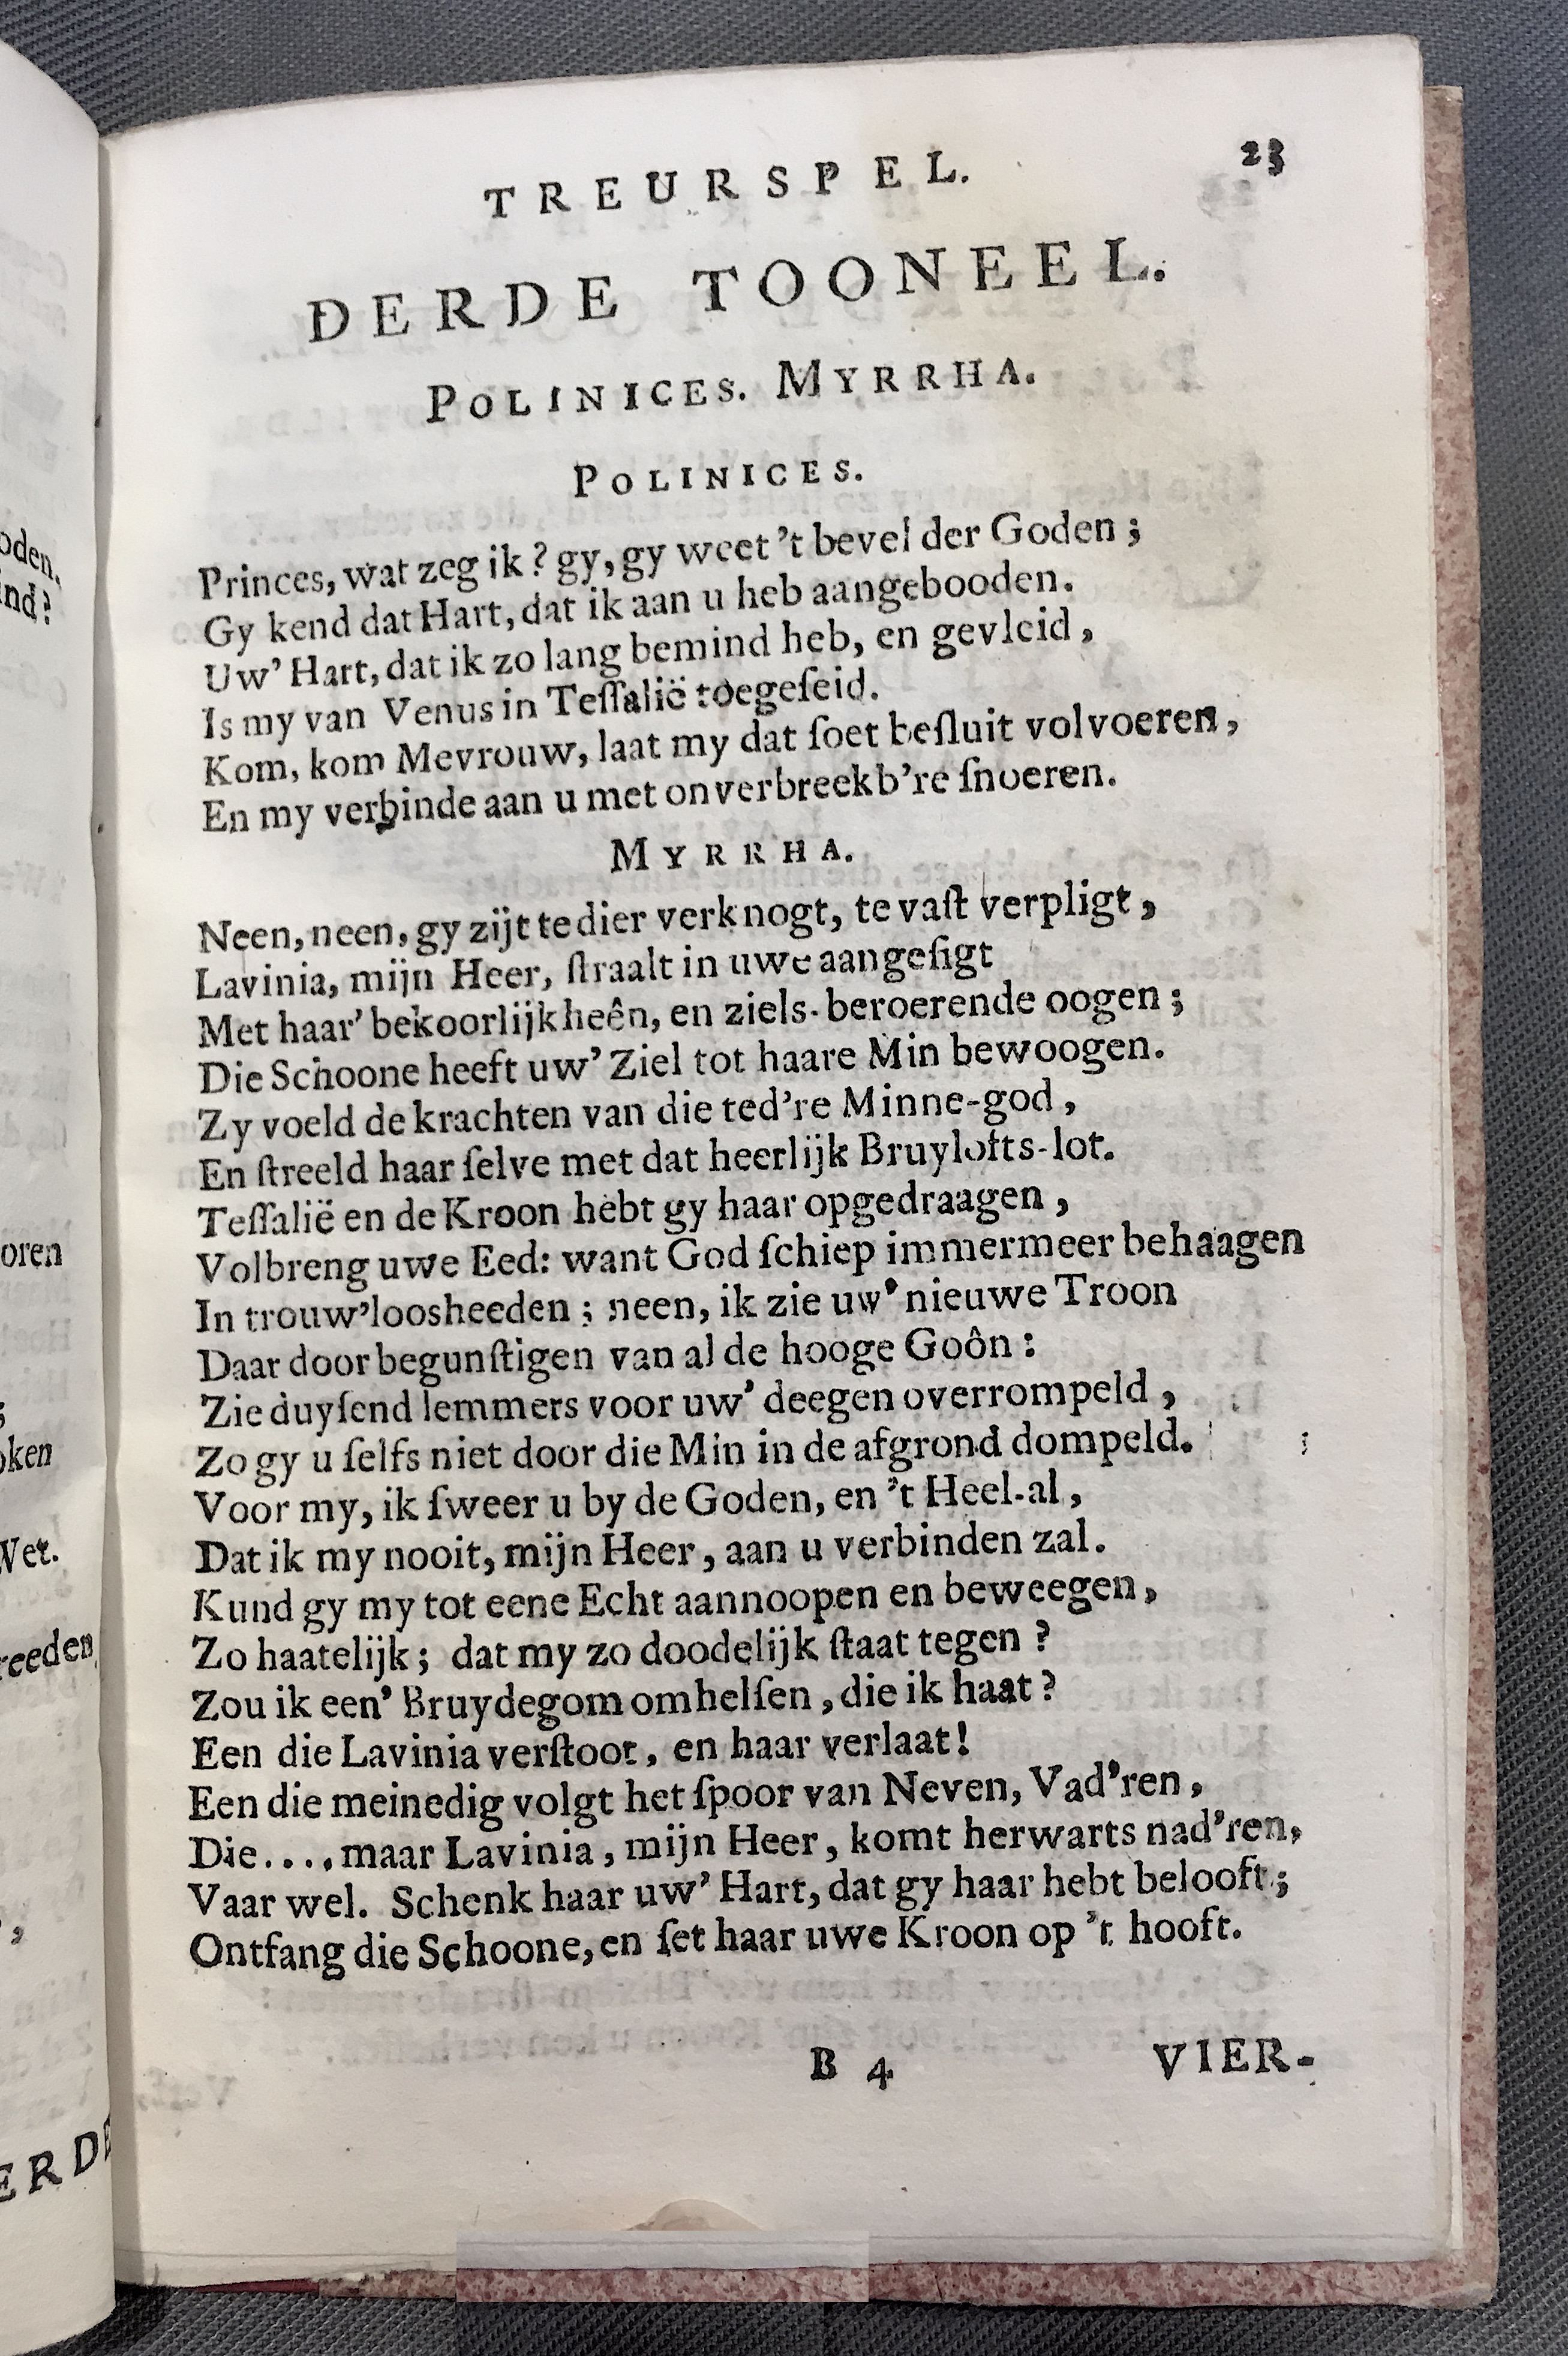 TREURSPEL. 23
DERDE TOONEEL.
POLINICES. MYRRHA.
POLINICES.
Princes, wat zeg ik? gy, gy weet 't bevel der Goden;
Gy kend dat Hart, dat ik aan u heb aangebooden.
Uw' Hart, dat ik zo lang bemind heb, en gevleid,
Is my van Venus in Teſſalië toegeſeid.
Kom, kom Mevrouw, laat my dat ſoet beſluit volvoeren,
En my verbinde aan u met onverbreekb're ſnoeren.
MYRRHA.
Neen, neen, gy zijt te dier verknogt, te vaſt verpligt,
Lavinia, mijn Heer, ſtraalt in uwe aangeſigt
Met haar' bekoorlijkheên, en ziels-beroerende oogen;
Die Schoone heeft uw' Ziel tot haare Min bewoogen.
Zy voeld de krachten van die ted're Minne-god,
En ſtreeld haar ſelve met dat heerlijk Bruylofts-lot.
Teſſalië en de Kroon hebt gy haar opgedraagen,
Volbreng uwe Eed: want God ſchiep immermeer behaagen
In trouw'loosheeden; neen, ik zie uw' nieuwe Troon
Daar door begunſtigen van al de hooge Goôn:
Zie duyſend lemmers voor uw' deegen overrompeld,
Zo gy u ſelfs niet door die Min in de afgrond dompeld.
Voor my, ik ſweer u by de Goden, en 't Heel-al,
Dat ik my nooit, mijn Heer, aan u verbinden zal.
Kund gy my tot eene Echt aannoopen en beweegen,
Zo haatelijk; dat my zo doodelijk ſtaat tegen?
Zou ik een' Bruydegom omhelſen, die ik haat?
Een die Lavinia verſtoot, en haar verlaat!
Een die meinedig volgt het ſpoor van Neven, Vad'ren,
Die.... maar Lavinia, mijn Heer, komt herwarts nad'ren,
Vaar wel. Schenk haar uw' Hart, dat gy haar hebt belooft;
Ontfang die Schoone, en ſet haar uwe Kroon op 't hooft.
B 4 VIER-